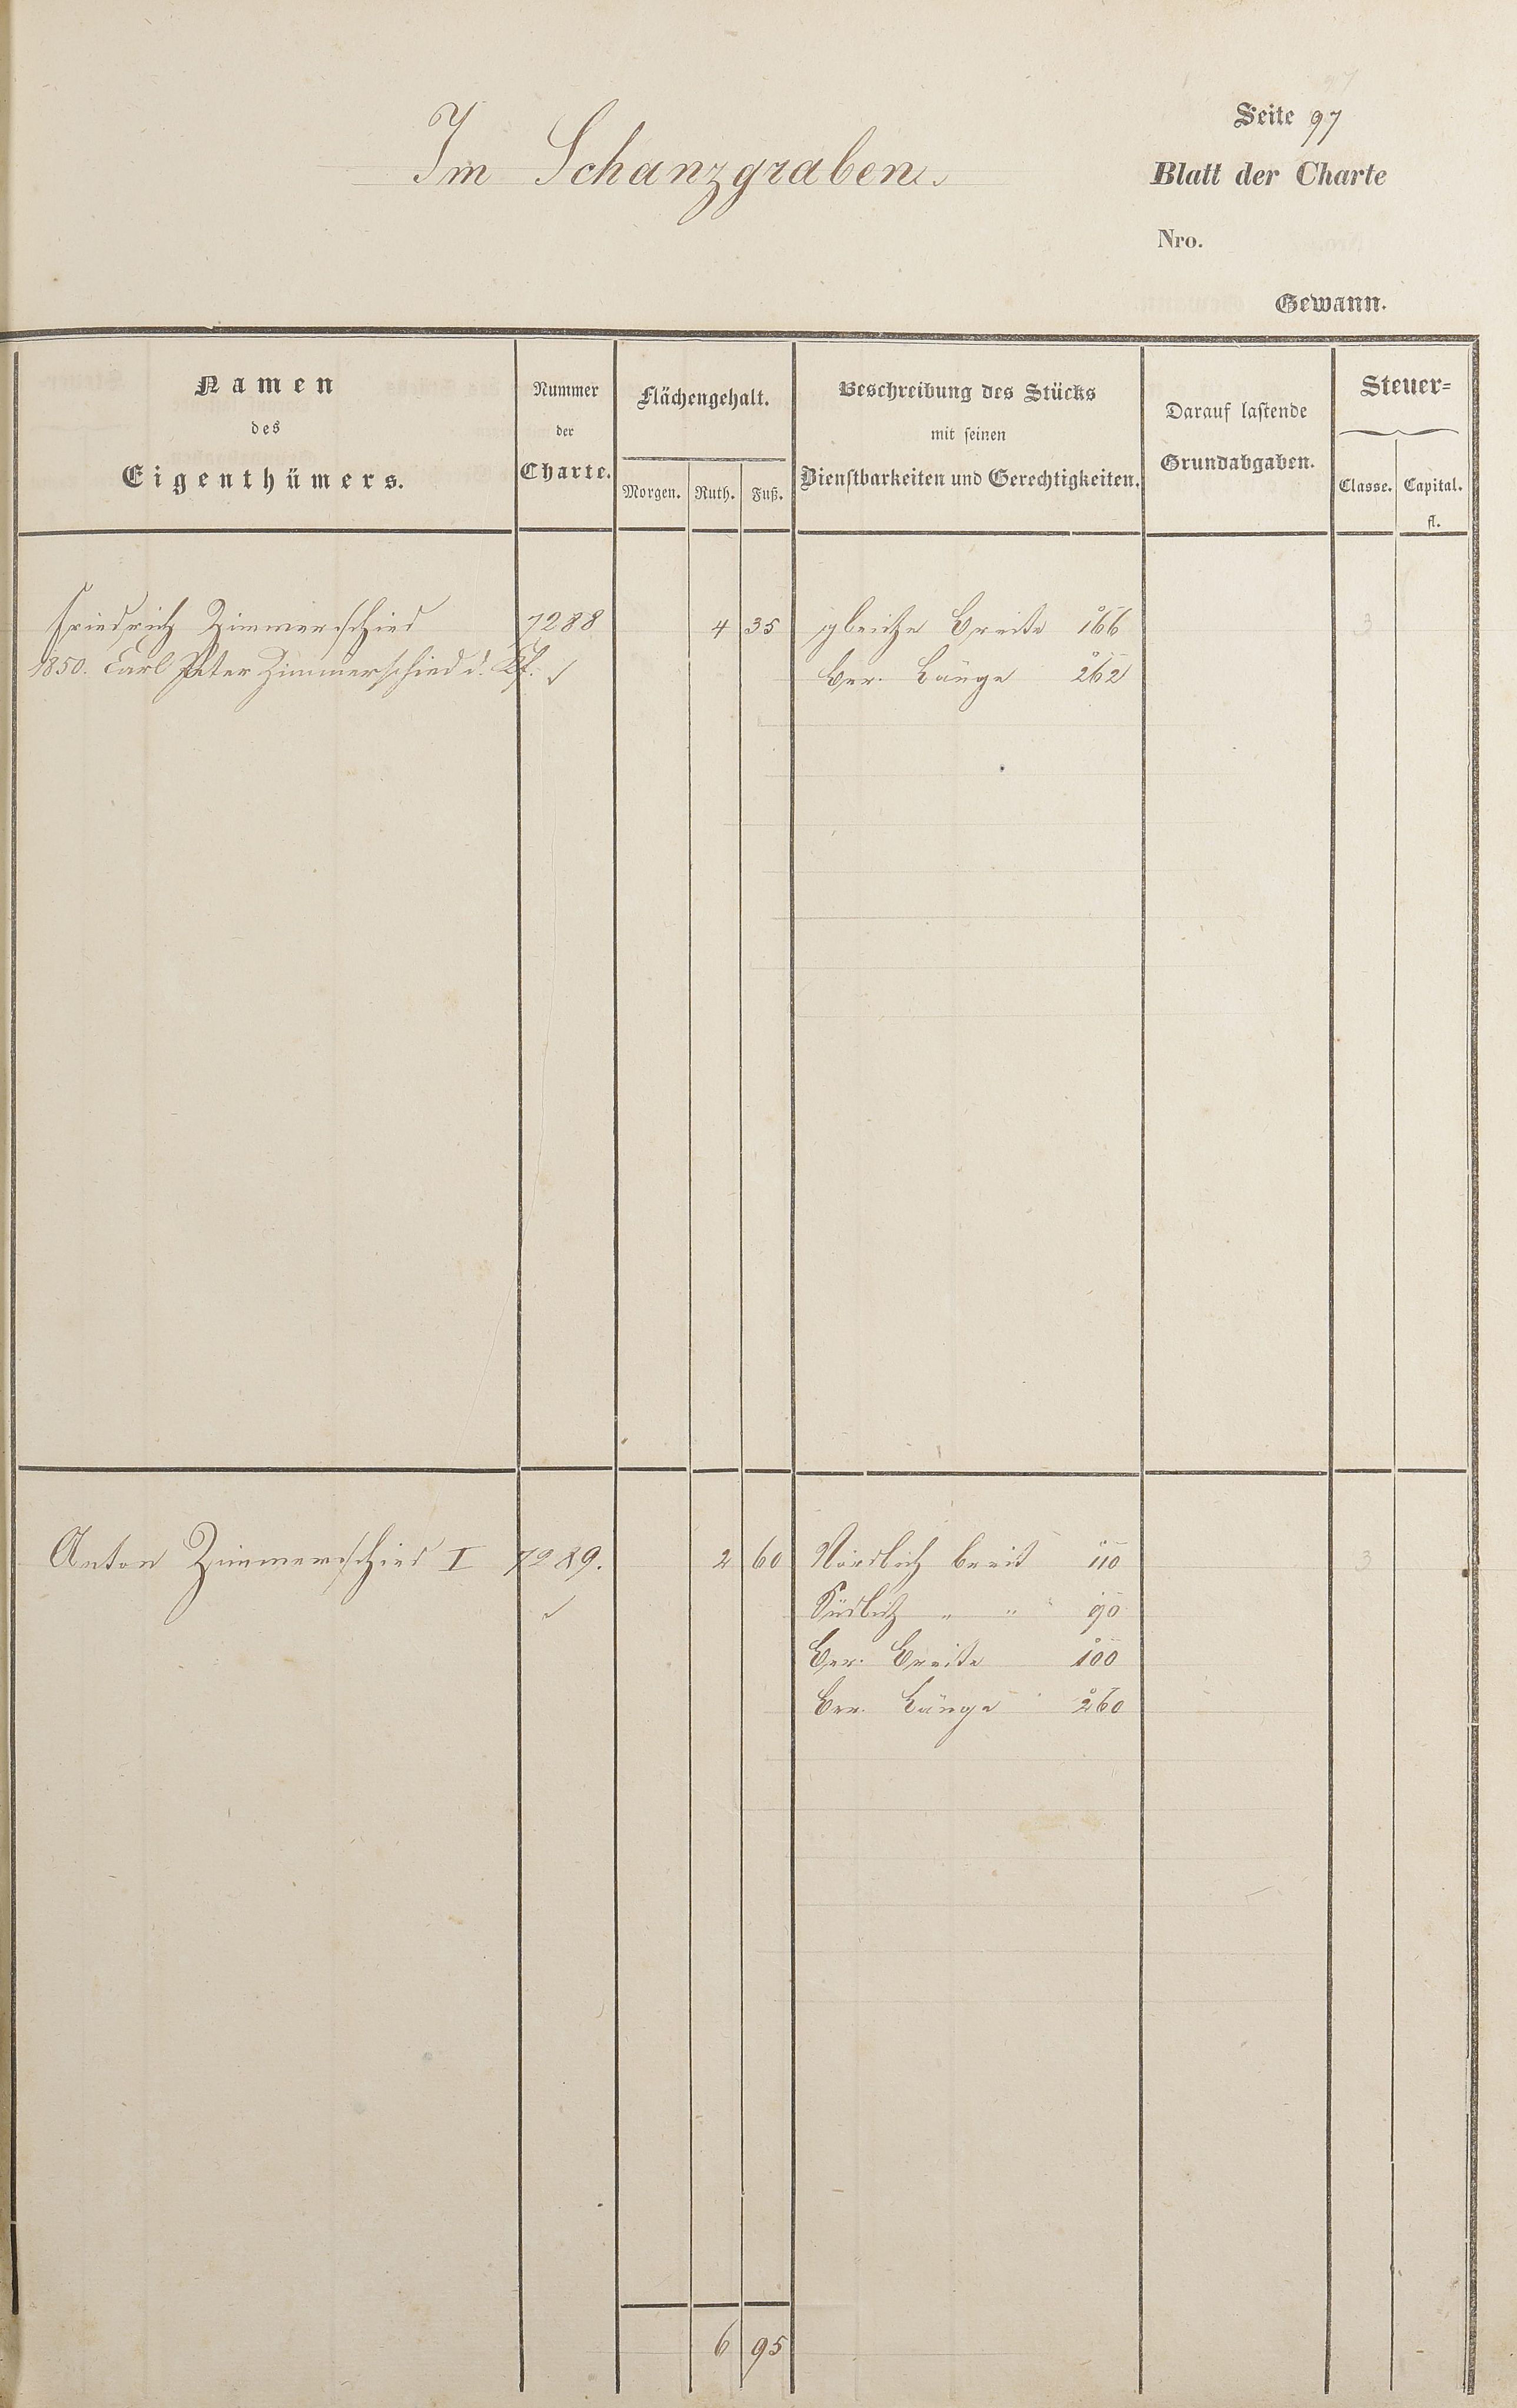 Seite 97
Im Schanzgraben.
Blatt der Charte
Nro.
Gewann.
Namen
des
Eigenthümers.
Nummer
der
Charte.
Flächengehalt.
Morgen. Ruth. Fuß.
Beschreibung des Stücks
mit seinen
Dienstbarkeiten und Gerechtigkeiten.
Darauf lastende
Grundabgaben.
Steuer=
Classe. Capital.
fl.
Friedrich Zimmerschied 7288 4 35 gleiche Breite 166 3
1850. Carl Peter Zimmerschied d. Ber. Länge 262
Anton Zimmerschied I 7289. 2 60 Nördlich breit 110 3
Südlich " " 90
Ber. Breite 100
Ber. Länge 260
6 95